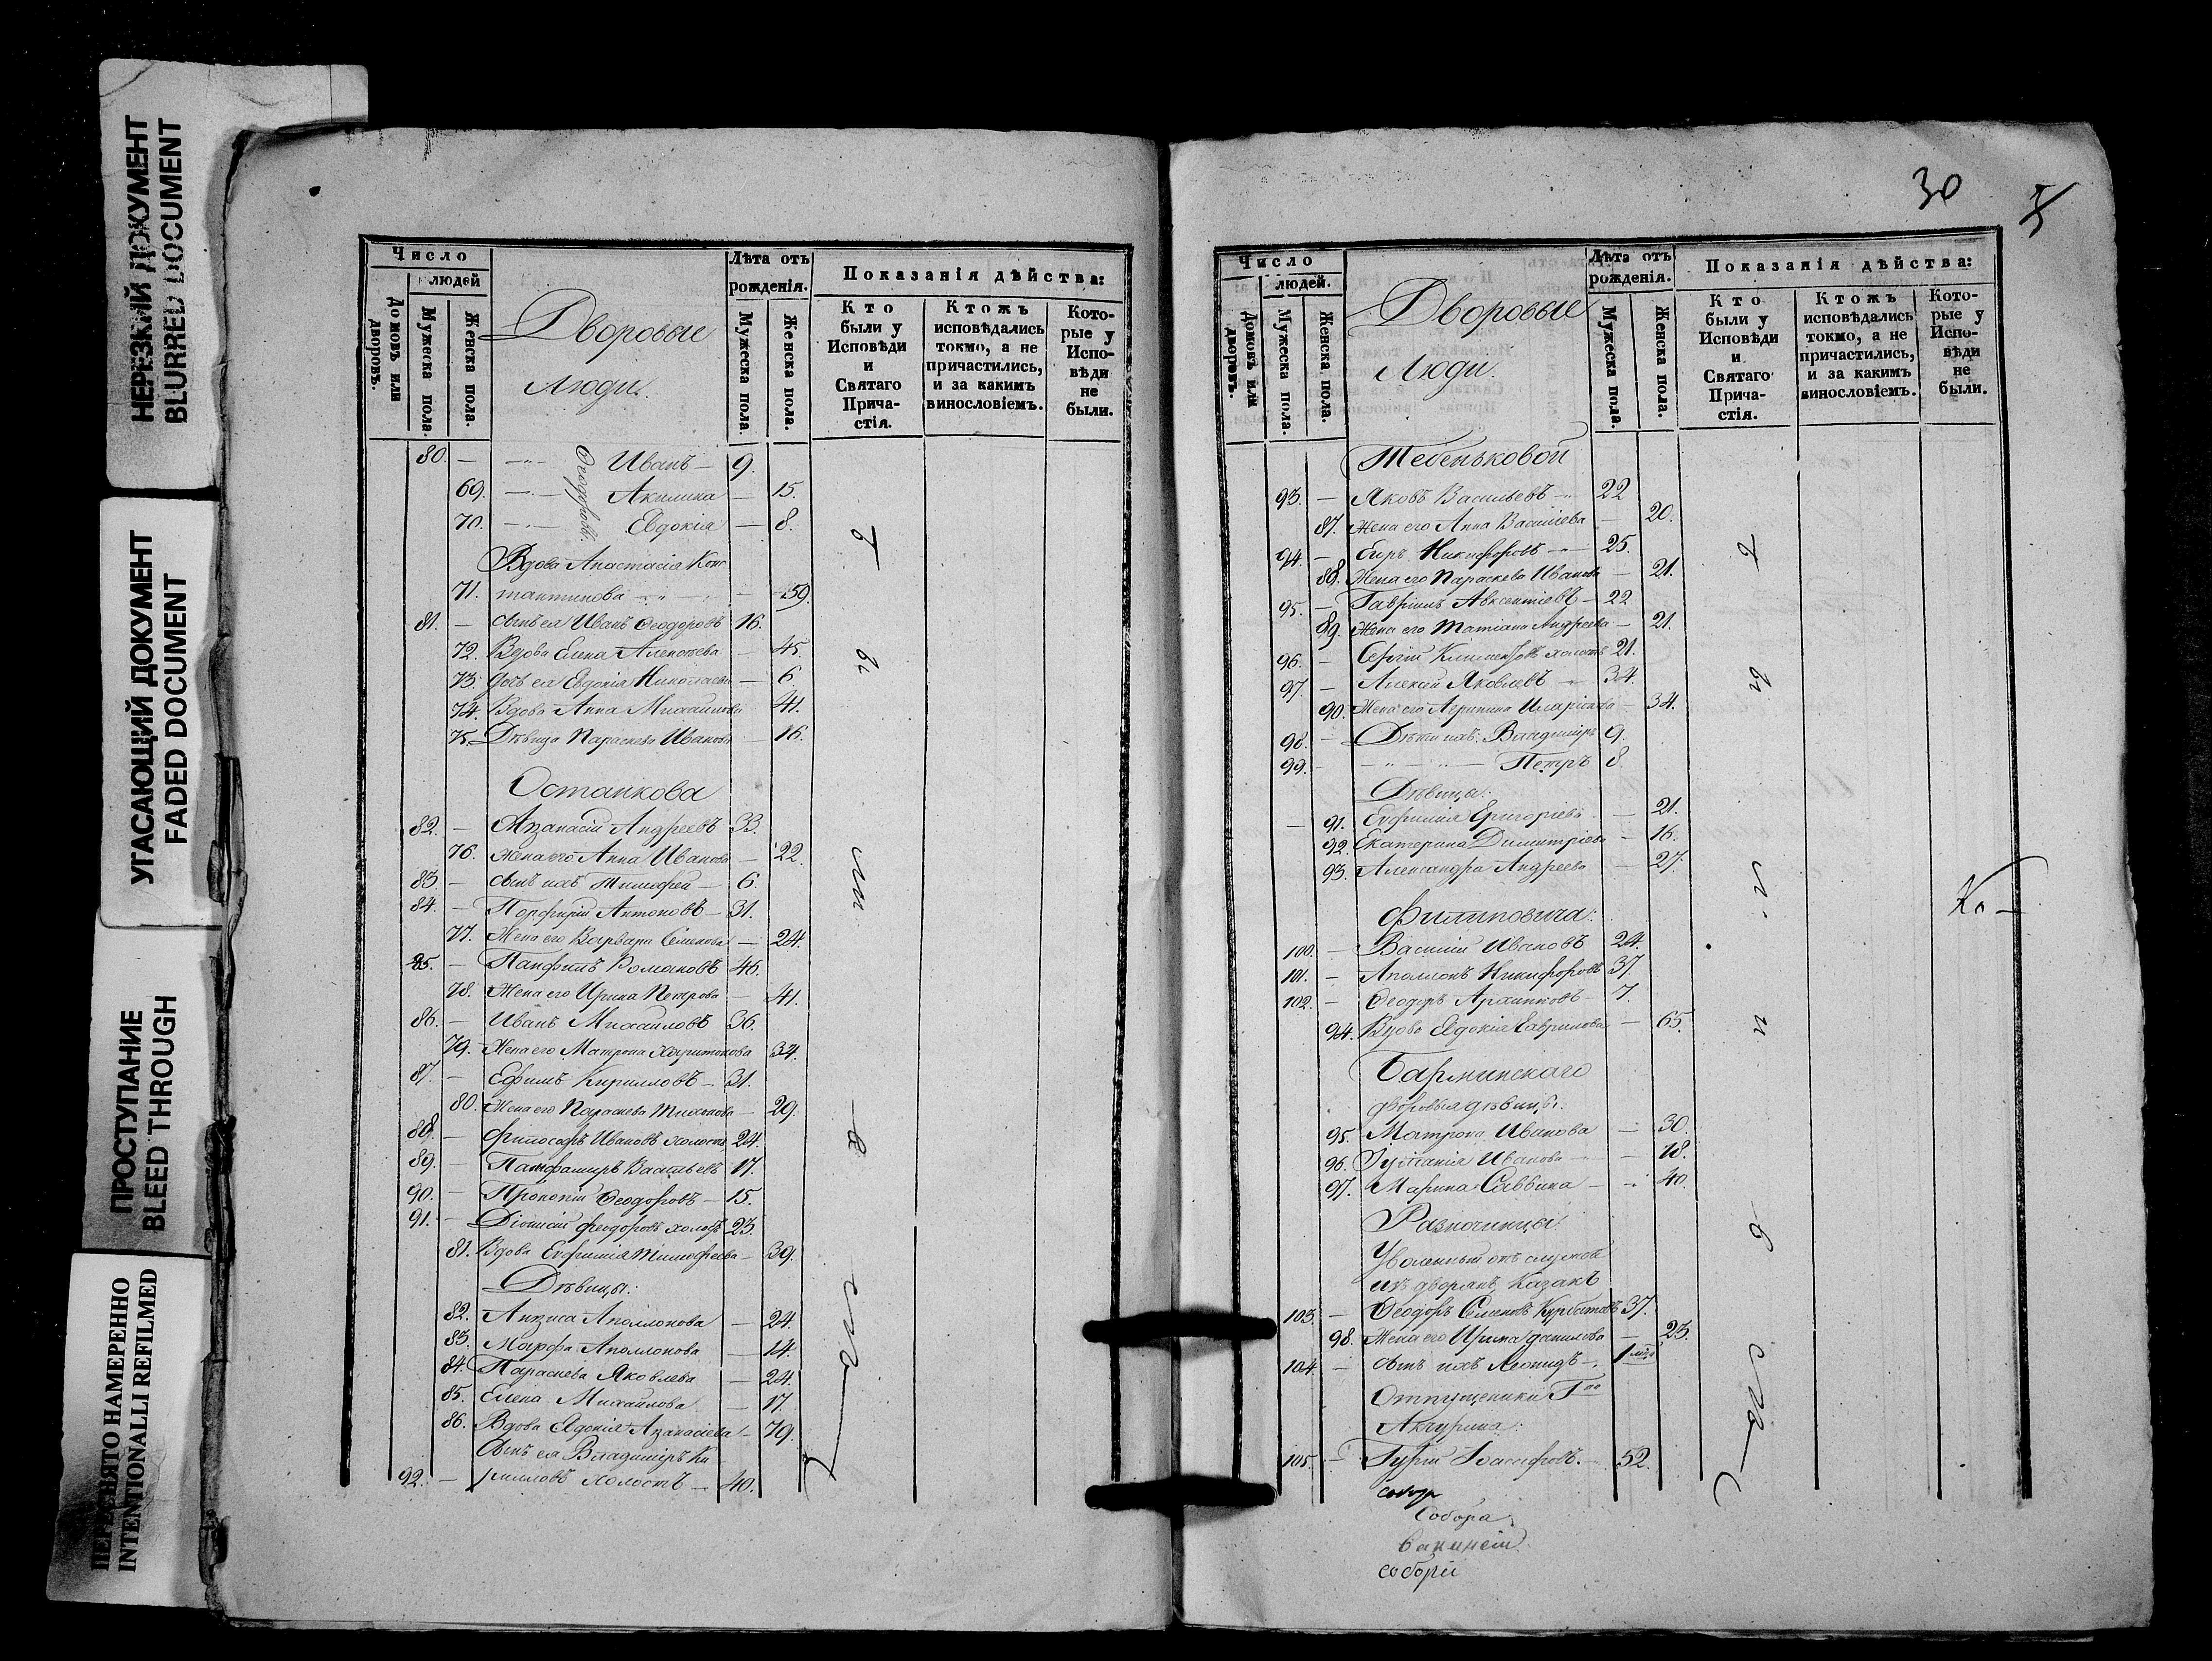 НЕРЕЗКИЙ ДОКУМЕНТ
BLURRED DOCUMENT
УГАСАЮЩИЙ ДОКУМЕНТ
FADED DOCUMENT
ПРОСТУПАНИЕ
BLEED THROUGH
ПЕРЕСНЯТО НАМЕРЕННО
INTENTIONALLI REFILMED
Число
людей
Домовъ или дворовъ.
Мужеска пола.
Женска пола.
Дворовые
Люди.
Лѣта отъ рожденія.
Мужеска пола.
Женска пола.
Показанія дѣйства:
Кто были у Исповѣди и Святаго Прича-стія.
Ктожъ исповѣдались токмо, а не причастились, и за какимъ винословіемъ.
Кото-рые у Испо-вѣди не были.
80. — Иванъ — 9.
Ѳеодоровы
69. Акилина — 15.
70. Евдокія — 8.
Вдова Анастасія Конс
71. тантинова — 59.
81. — сынъ ея Иванъ Ѳеодоровъ 16.
72. Вдова Елена Алексѣева — 45.
73. дочь ея Евдокія Николаева — 6.
74. Вдова Анна Михаилова 41.
75. Дѣвица Параскева Иванова — 16.
Останкова
82. — Аѳанасій Андреевъ 33.
76. Жена его Анна Иванова — 22.
83. — сынъ ихъ Тимофей — 6.
84. — Порфирій Антоновъ — 31.
77. Жена его Варвара Семенова — 24.
85. — Панфилъ Романовъ 46.
78. Жена его Ирина Петрова — 41.
86. — Иванъ Михаиловъ 36.
79. Жена его Матрона Харитонова 34.
87. — Ефимъ Кирилловъ — 31.
80. Жена его Параскева — 29.
88. — Философъ Ивановъ холостъ 24.
89. — Васильевъ 17.
90. — Прокопій Ѳеодоровъ — 15.
91. — Діонисій Феодоровъ холостъ 23.
81. Вдова Евфимія Тимофеева — 39.
Дѣвицы:
82. Анѳиса Аполлонова — 24.
83. Марфа Аполлонова — 14.
84. Параскева Яковлева — 24.
85. Елена Михаилова — 17.
86. Вдова Евдокія Аѳанасіева — 79.
Сынъ ея Владиміръ Ки
92. — рилловъ холостъ — 40.
бы
ли
30
Число
людей.
Домовъ или дворовъ.
Мужеска пола.
Женска пола.
Дворовые
Люди.
Лѣта отъ рожденія.
Мужеска пола.
Женска пола.
Показанія дѣйства:
Кто были у Исповѣди и Святаго Прича-стія.
Ктожъ исповѣдались токмо, а не причастились, и за какимъ винословіемъ.
Кото-рые у Испо-вѣди не были.
Тебеньковой
93. — Яковъ Васильевъ — 22
87. Жена его Анна Василіева — 20.
94. — Никифоровъ — 25.
88. Жена его Параскева Иванова — 21.
95. — Гавріилъ Авксентіевъ — 22
89. Жена его Татіана Андреева — 21.
96. — Сергій Климентовъ холостъ 21.
97. — Алексій Яковлевъ — 34.
90. Жена его Агрипина Иларіонова — 34.
98. — Дѣти ихъ: Владиміръ 9.
99. — Петръ 8.
Дѣвицы:
91. Евфимія Григоріева — 21.
92. Екатерина Димитріева — 16.
93. Александра Андреева — 27.
Филиповича:
100. — Василій Ивановъ 24.
101. — Аполлонъ Никифоровъ 37.
102. — Ѳеодоръ Архиповъ — 7.
94. Вдова Евдокія Гаврилова — 65.
Бармынскаго
дворовыя дѣвицы.
95. Матрона Иванова — 30.
96. Іуліанія Иванова — 18.
97. Марина Саввина — 40.
Разночинцы
Уволенный отъ службы
изъ дворянъ Казакъ
103. — Ѳеодоръ Семеновъ Курбатовъ 37.
98. Жена его Ирина Данилова — 23.
104. — сынъ ихъ Леонидъ — 1
Отпущеники Г
Акчурина:
105. — Гурій Іосифовъ. — 52.
бы
ли
Ко —
собор
Собора
соборн